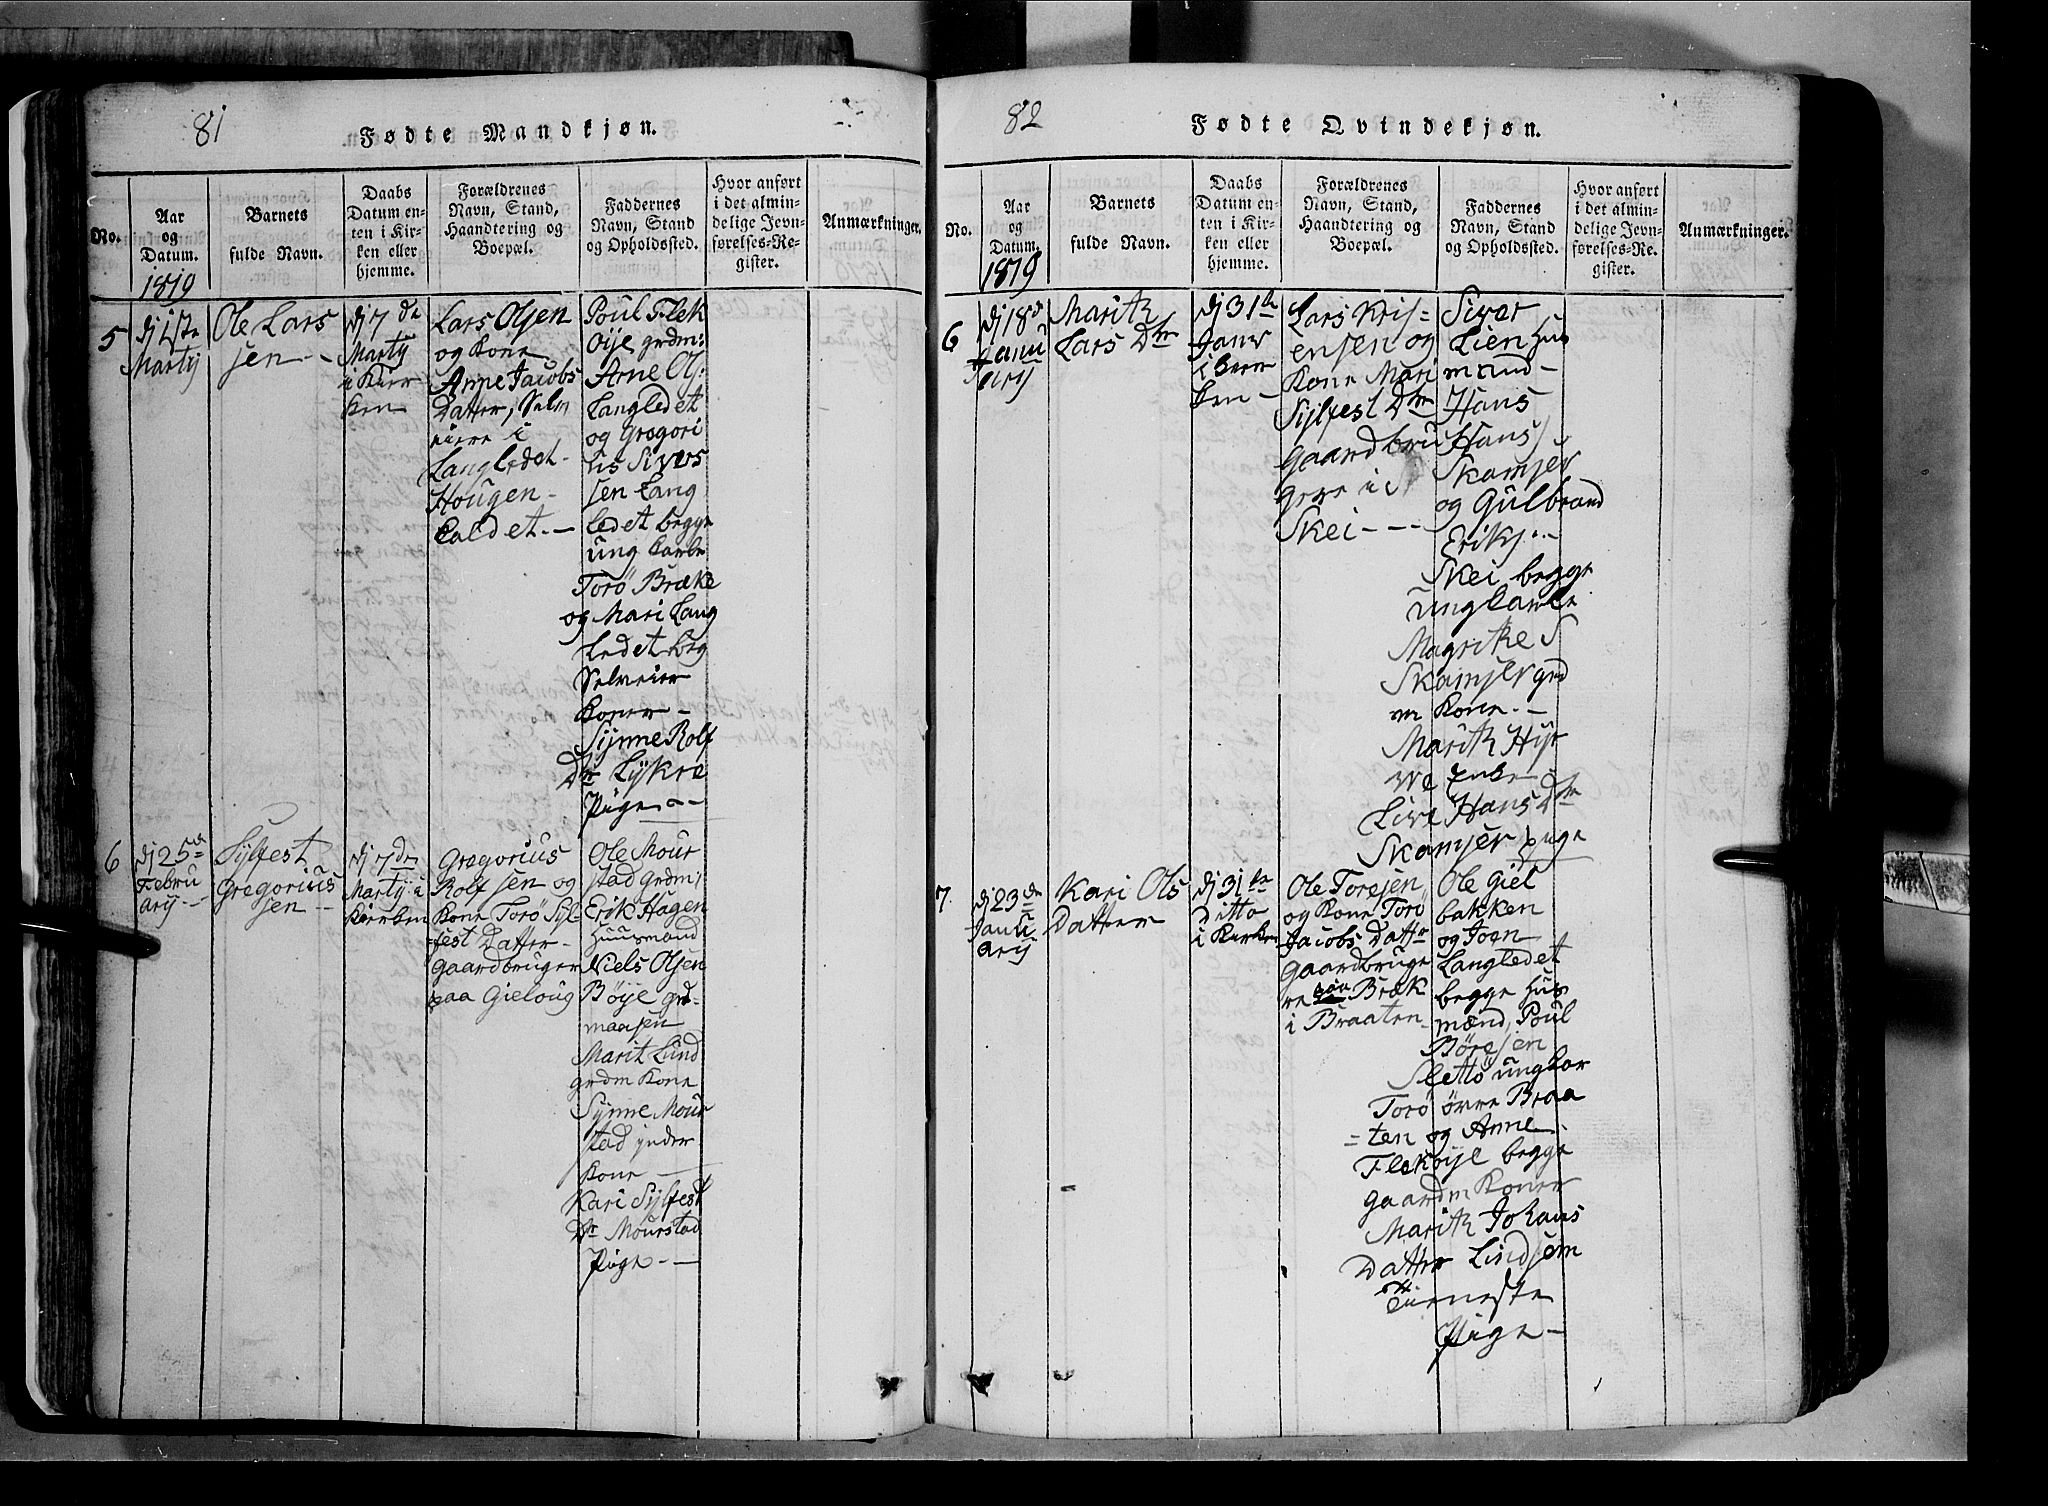 81
Fødte Mandkjøn.
No.
Aar
og
Datum.
1819
Barnets
fulde Navn.
Daabs
Datum en-
ten i Kir-
ken eller
hjemme.
Forældrenes
Navn, Stand,
Haandtering og
Boepæl.
Faddernes
Navn, Stand
og Opholdssted.
Hvor anført
i det almin-
delige Jevn-
førelses-Re-
gister.
Anmærkninger.
5
dj 1ste
Martij
Ole Lars
sen --
dj 7de
Martij
i Kier
ken
Lars Olsen
og Kone
Anne Jacobs
Datter, Selv
eiere i
Langledet-
Hougen-
Caldet.-
Poul Flek
Öije grdm:
Arne Ols:
Langledet
og Gregori
us Sivers
sen Lang
ledet begge
ung Karle
Torö Bræke
og Mari Lang
ledet beg
Selveier
Koner -
Sÿnne Rolf
Dr Lykre
Pige --
6
dj 25de
Febru
arij --
Sÿlfest
Gregorius
sen --
dj 7de
Martij i
Kierken
Gregorius
Rolfsen og
Kone Torö Syl-
=fest Datter-
Gaardbruger
paa Gieloug
Ole Mour
stad Grdm:
Erik Hagen
Huusmand
Niels Olsen
Böije grd-
maasen
Marit Lund
grdm Kone
Sÿnne Mour
stad
Kone
Kari Sylfest
Dr Mourstad
Pige --
82
Fødte Qvindekjøn.
No.
Aar
og
Datum.
1819
Barnets
fulde Navn.
Daabs
Datum en-
ten i Kir-
ken eller
hjemme.
Forældrenes
Navn, Stand,
Haandtering og
Boepæl.
Faddernes
Navn, Stand
og Opholdsted.
Hvor anført
i det almin-
delige Jevn-
førelses-Re-
gister.
Anmærkninger.
6
dj 18d
Janu
arij
Marith
Lars Dtr
dj 31te
Janr
i
ken -
Lars Kris-
ensen og
Kone Mari
Sylfest Dtr
Gaardbru
gere i
Skei ---
Siver
Lien Huus
mand -
Hans
Hans
Skamser
og Gulbrand
Eriks --
Skei begge
ungkarle
Magrike S
Skamser grd
m Kone --
Marith

Live Hans Dtr
Skamser pige
7
dj 23de
Janu
arij
Kari Ols
Datter
dj 31te
Ditto
i Kierken
Ole Toresen
og Kone Torö
Jacobs Datter
Gaardbruge
re paa Bræk
i Braaten
Ole Giel
bakken
og Joen
Langledet
begge Huus
mænd, Poul
Böresen
Slettö ungkar
Torö övre Braa
=ten og Anne
Flekoije begge
Gaardm Koner
Marith Johans
Datter Lindsem
Tieneste
Pige -